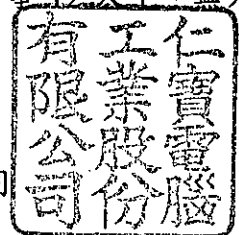 仁寶電腦
工業股份
有限公司